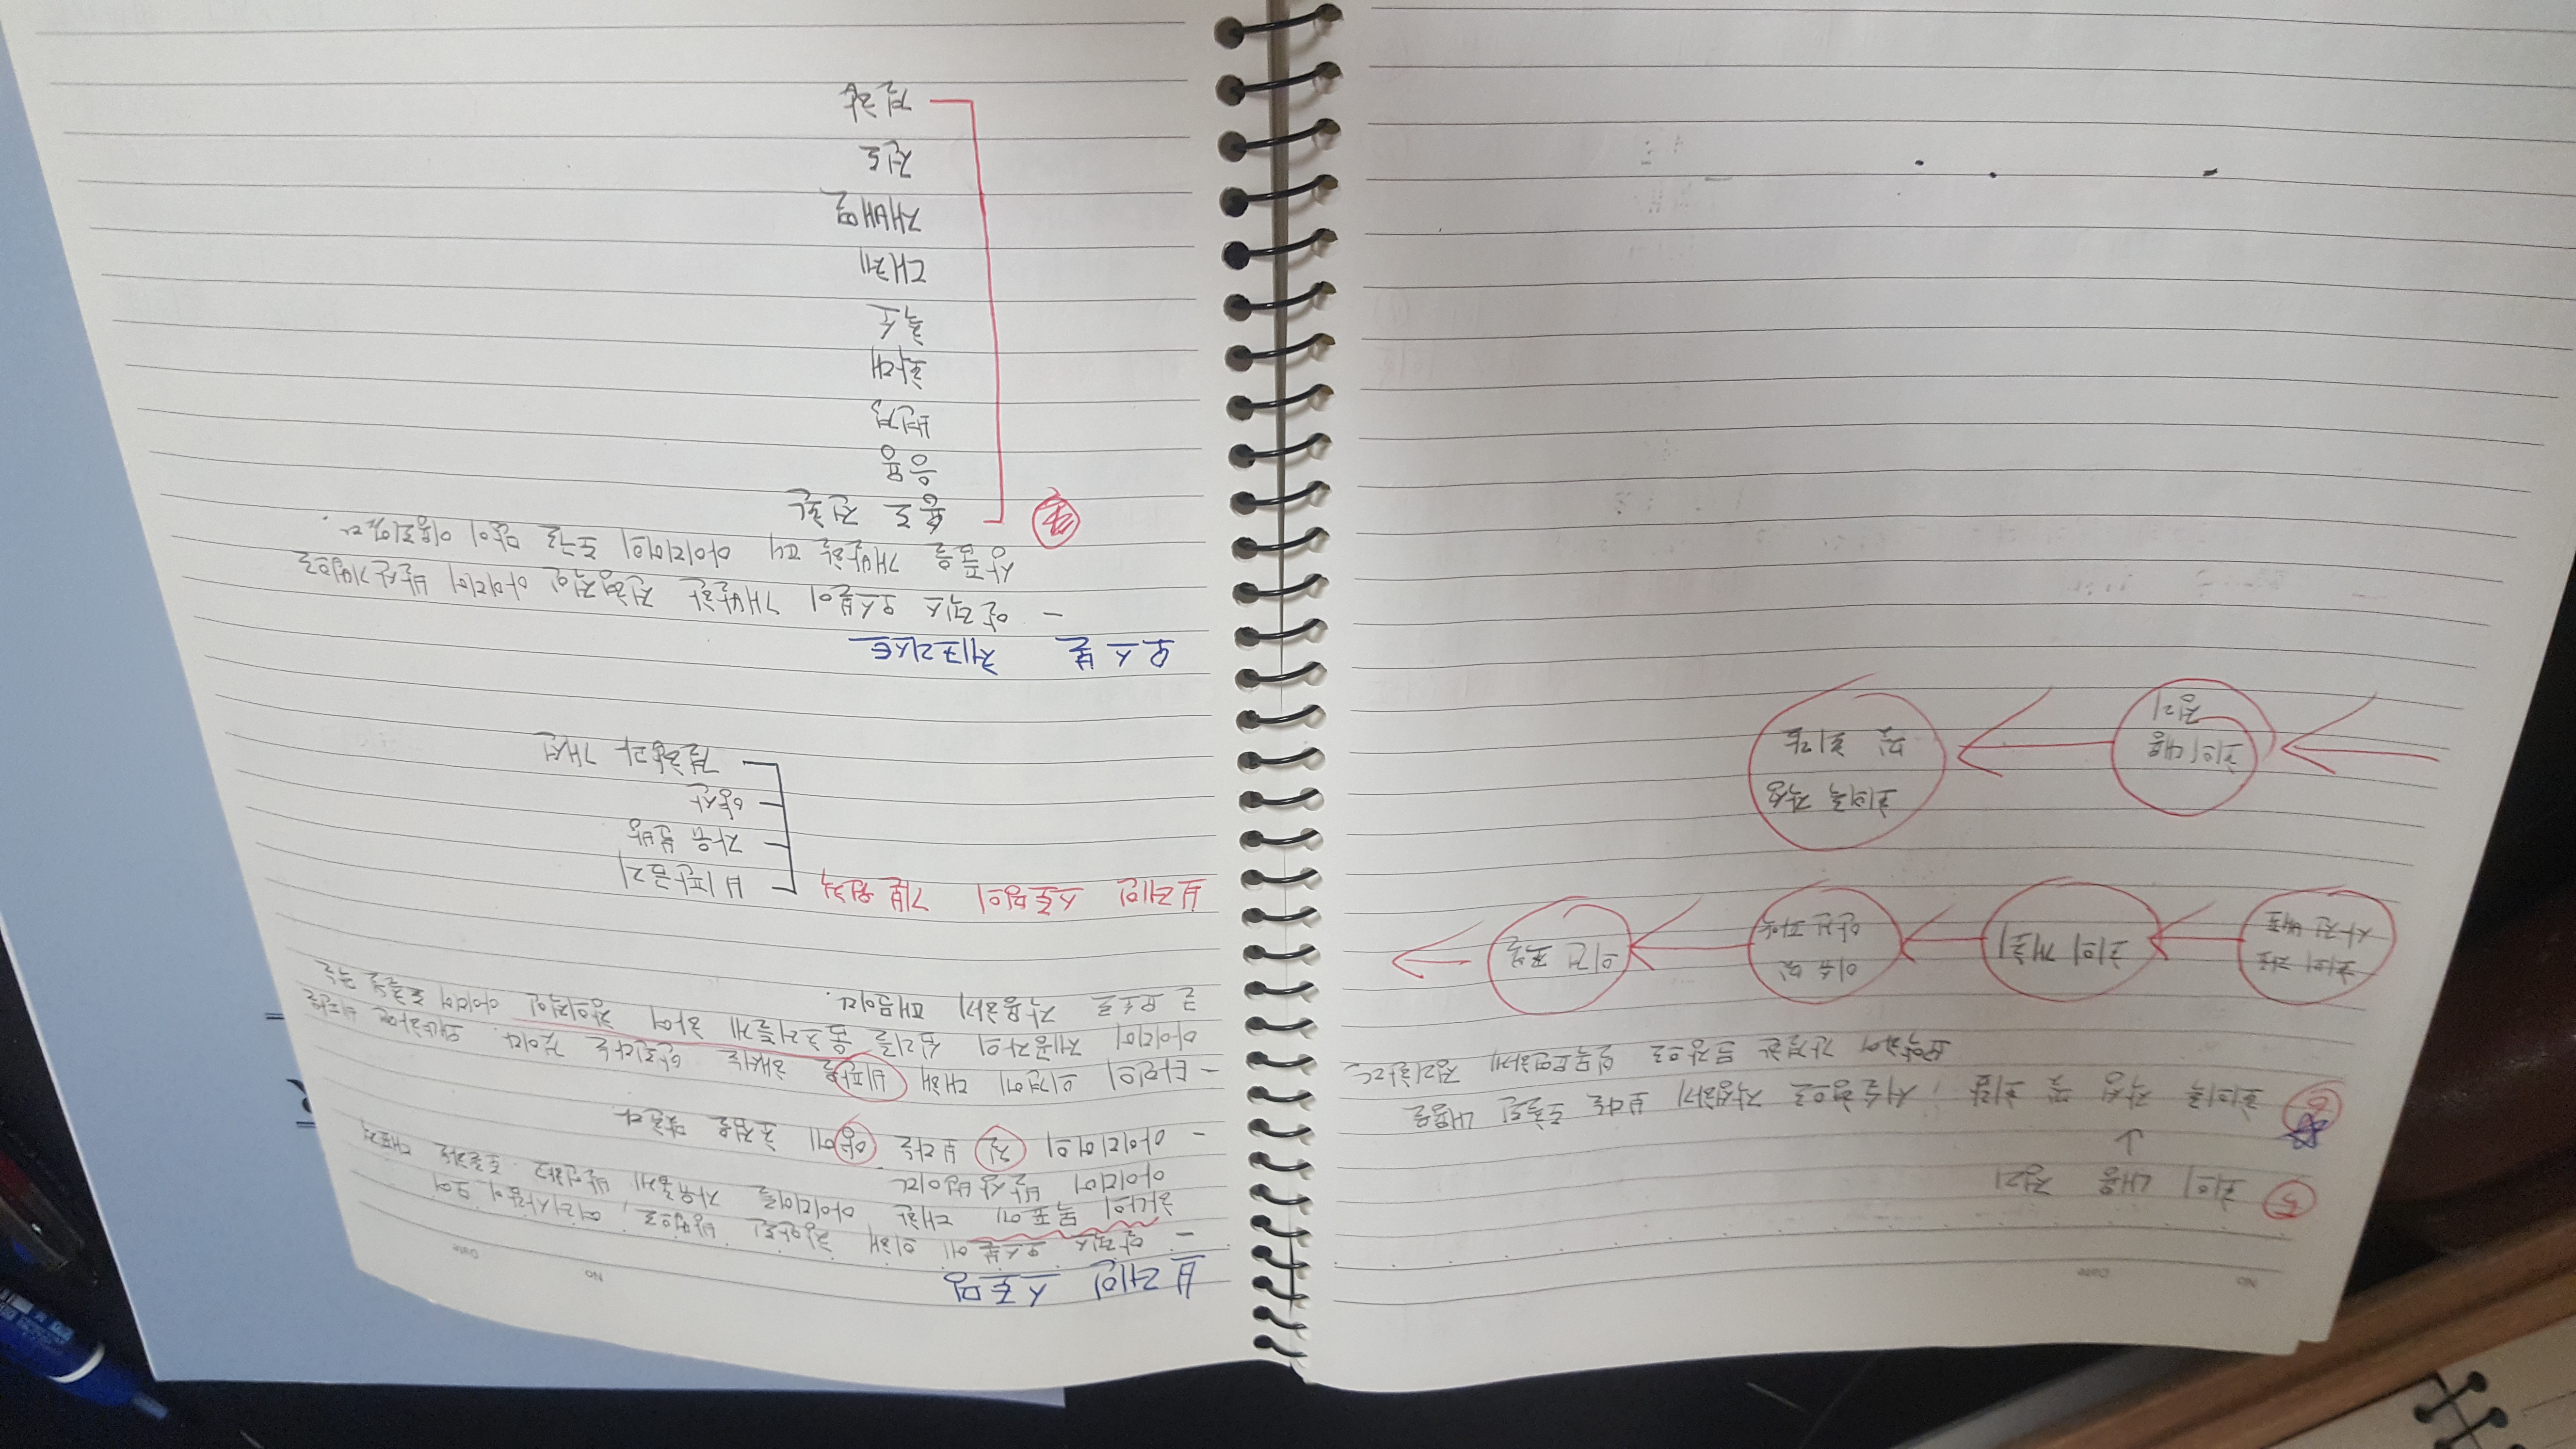 No
Date
⑤ 회의 내용 정리
↓
⑥ 회의록 작성 및 회람 ; 서술형으로 작성하기 보다는 도출된 내용을
요약하여 간결한 문장으로 일목요연하게 정리한다
회의 자료
사전 배포
회의 개최
이슈 및
안건 파악
의견 조율
회의 내용
정리
회의록 작성
및 회람
No
Date
브레인 스토밍
- 알렉스 오스본에 의해 창안된 방법으로, 여러사람이 모여
하나의 목표에 대한 아이디어를 자유롭게 발언하고 토론하는 대표적
아이디어 발상법이다
- 아이디어의 질 보다는 양에 초점을 맞춘다
- 타인의 의견에 대해 비판을 해서는 안된다는 것이다. 왜냐하면 비판은
아이디어 제공자의 심리를 움츠러들게 하여 창의적인 아이디어 도출을 죽는
큰 요소로 작용하기 때문이다.
브레인 스토밍의 기본원칙
비판금지
자유 분방
양산
결합과 개선
오스본 체크리스트
- 알렉스 오스본이 개발한 전형적인 아이디어 발산기법으로
상품을 개발할 때 아이디어의 도구로 많이 이용되었다.
용도 전환
응용
변경
확대
축소
대체
재배열
전도
결합